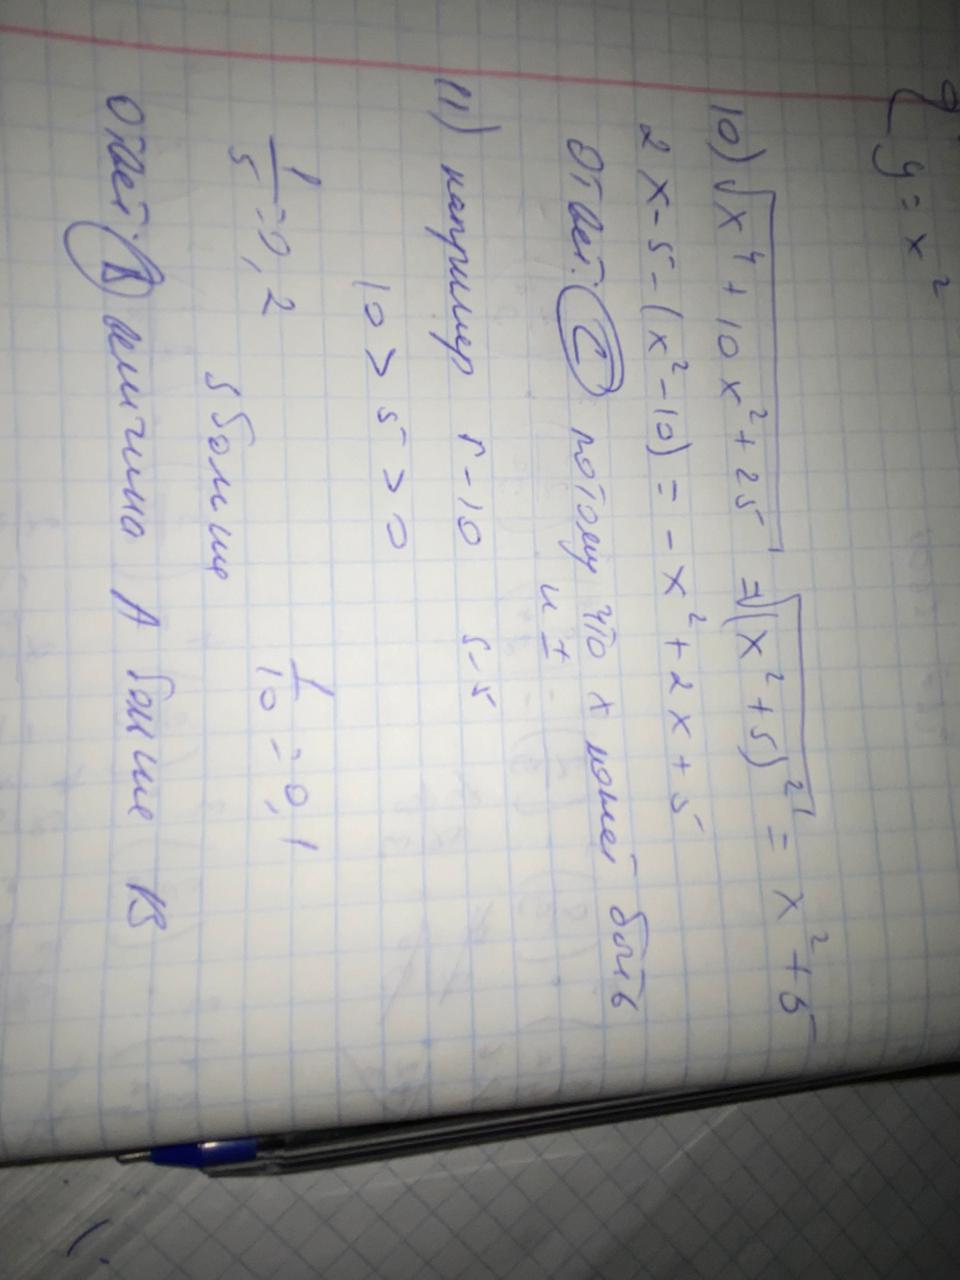 y = x²
10) √x⁴ + 10x² + 25 = √(x² + 5)² = x² + 5
2x - 5 - (x² - 10) = - x² + 2x + 5
Ответ: C потому что x может быть
и ±
11) например r - 10 s - 5
10 > 5 > 0
1/5 = 0,2 1/10 = 0,1
больше
Ответ: величина A больше B